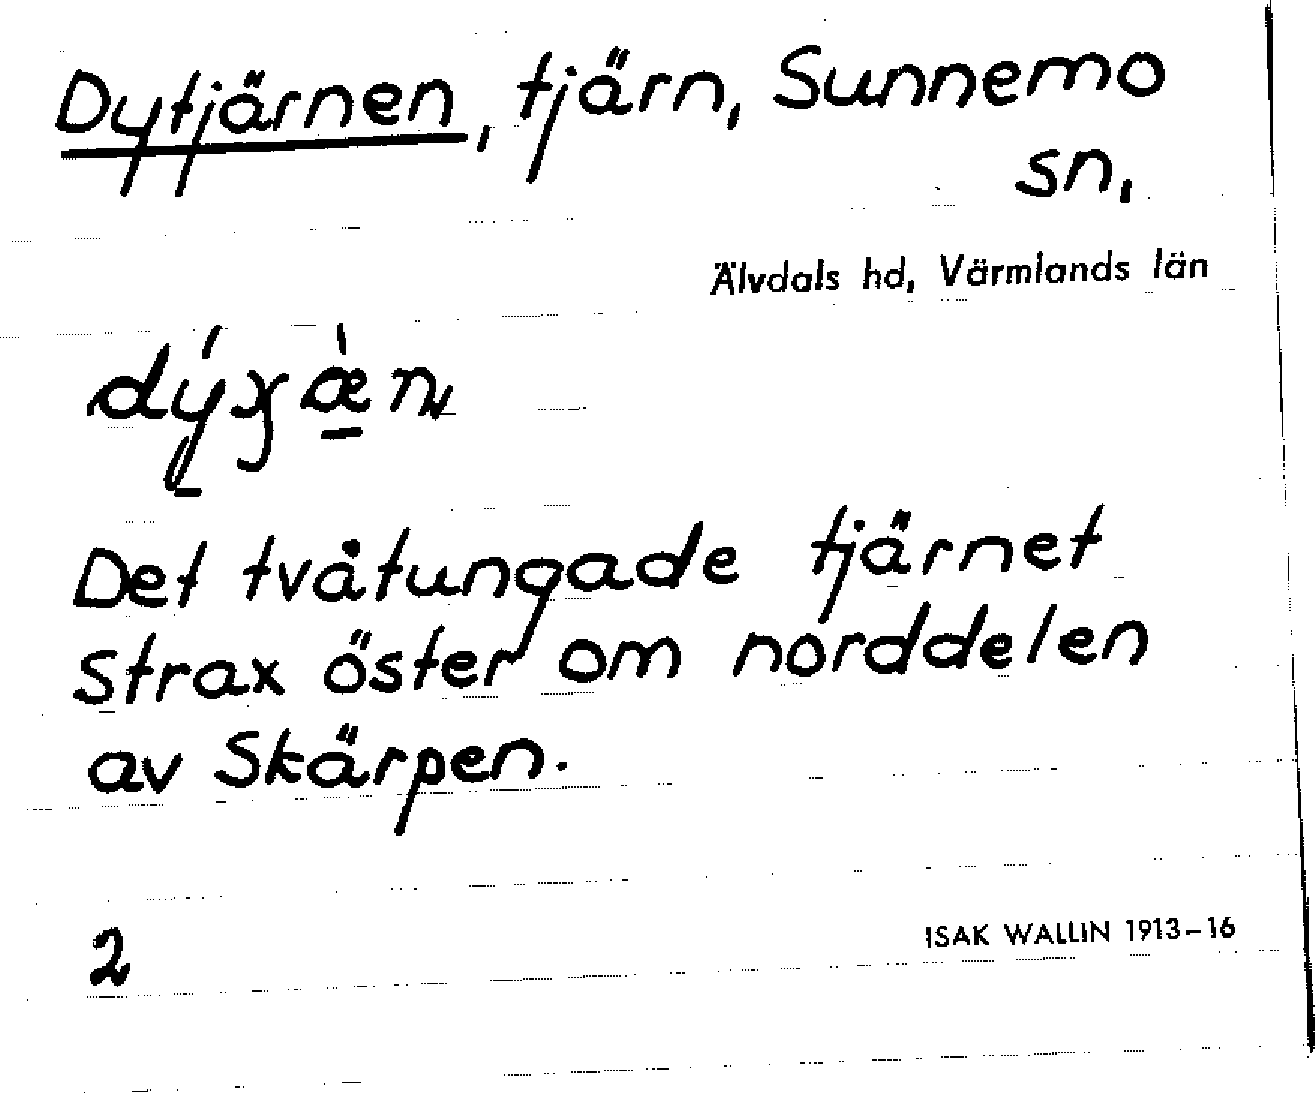 Dytjärnen, tjärn, Sunnemo
sn,
Älvdals hd, Värmlands län
Det tvåtungade tjärnet
strax öster om norddelen
av Skärpen.
2
ISAK WALLIN 1913–16